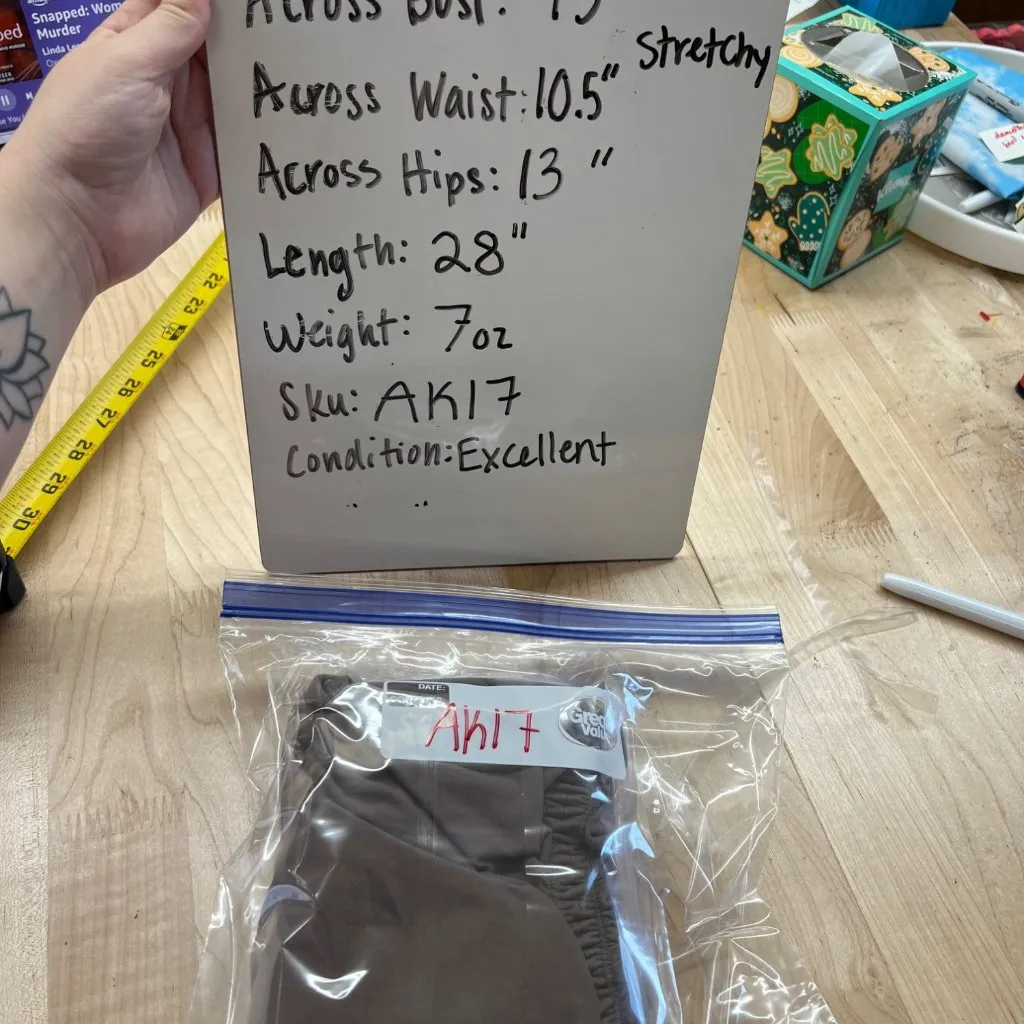 Snapped: Wom
Murder
Across Bust: 19
Stretchy
Across Waist: 10.5"
Across Hips: 13 "
Length: 28"
Weight: 7oz
Sku: AK17
Condition: Excellent
22 23 24 25 27 28 29 30
DATE:
AK17
Great
Valu